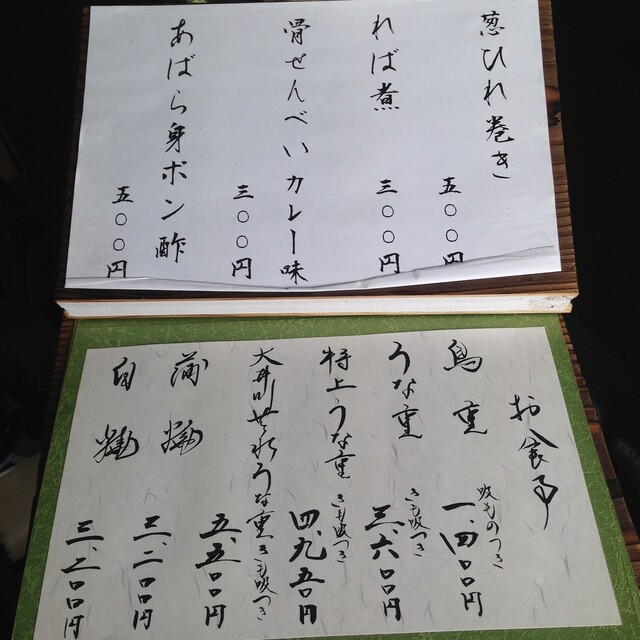 葱ひれ巻き
五〇〇円
れば煮
三〇〇円
骨せんべいカレー味
三〇〇円
あばら身ポン酢
五〇〇円
お食事
鳥重
吸ものつき
一、四〇〇円
うな重
きも吸つき
三、六〇〇円
特上うな重
きも吸つき
四、九五〇円
大井川共水うな重きも吸つき
五、五〇〇円
蒲焼
三、二〇〇円
白焼
三、二〇〇円